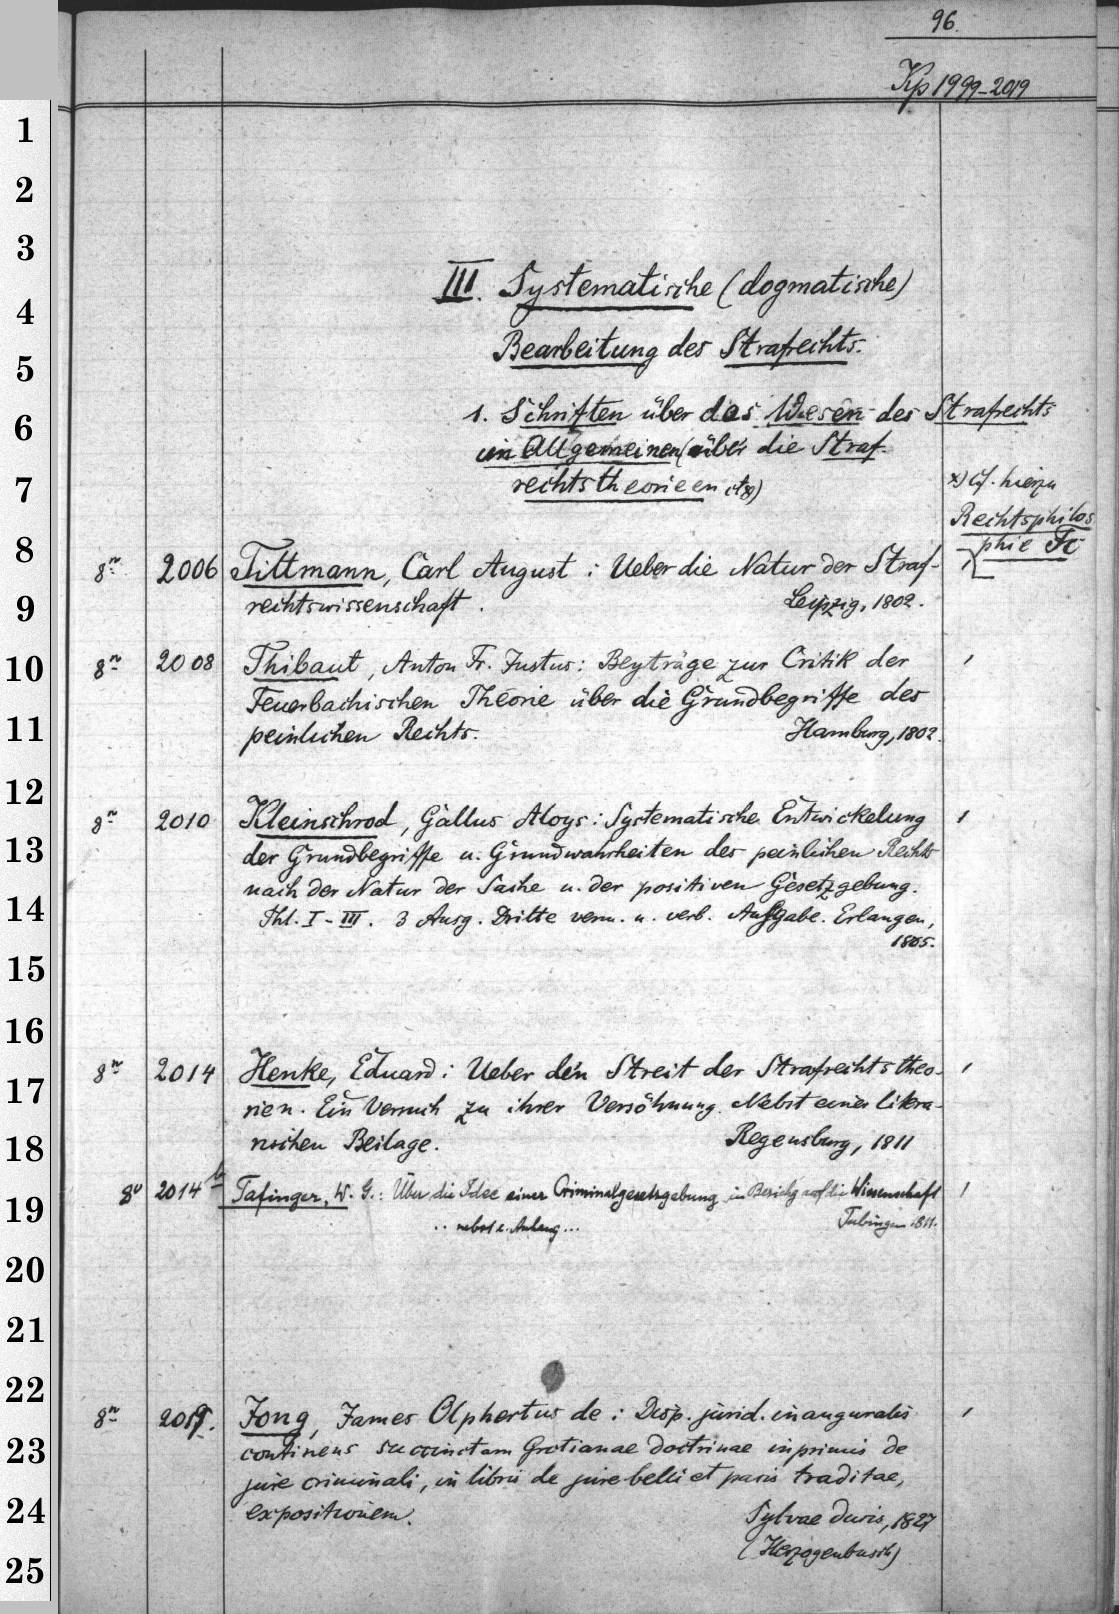 96.
Kp 1999-2019
1
2
3
III. Systematische (dogmatische)
4
Bearbeitung des Strafrechts.
5
1. Schriften über das Wesen des Strafrechts
6
im Allgemeinen (über die Straf-
rechtstheorieen etx)
7
x) cf. hierzu
Rechtsphilos
phie Fc
8
8° 2006 Tittmann, Carl August : Ueber die Natur der Straf-
9
rechtswissenschaft. Leipzig, 1802.
10
8° 2008 Thibaut, Anton Fr. Justus: Beyträge zur Critik der
Feuerbachischen Theorie über die Grundbegriffe des
11
peinlichen Rechts. Hamburg, 1802.
12
8° 2010 Kleinschrod, Gallus Aloys: Systematische Entwickelung
13
der Grundbegriffe u. Grundwahrheiten des peinlichen Rechts
nach der Natur der Sache u. der positiven Gesetzgebung.
14
Thl. I - III. 3 Ausg. Dritte verm. u. verb. Ausgabe. Erlangen,
1805.
15
16
8° 2014 Henke, Eduard: Ueber den Streit der Strafrechtstheo-
17
rien. Ein Versuch zu ihrer Versöhnung. Nebst einer litera-
18
rischen Beilage. Regensburg, 1811
8° 2014 b Tafinger, W. G.: Über die Idee einer Criminalgesetzgebung in Bezichg auf die Wissenschaft
19
.. nebst e. Anhang ... Tubingen 1811.
20
21
22
8° 2019. Jong, James Olphertus de : Disp. jurid. inauguralis
23
continens succinctam Grotianae doctrinae inprimis de
jure criminali, in libris de jure belli et pacis traditae,
24
expositionem. Sylvae ducis, 1827
(Herzogenbusch)
25